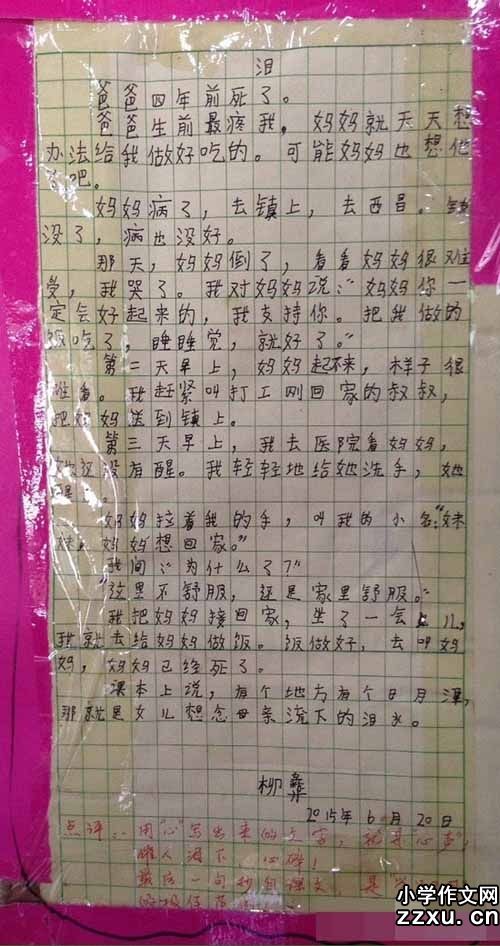 泪
爸爸四年前死了。
爸爸生前最疼我，妈妈就天天想
办法给我做好吃的。可能妈妈也想他
了吧。
妈妈病了，去镇上，去西昌。钱
没了，病也没好。
那天，妈妈倒了，看看妈妈很难
受，我哭了。我对妈妈说：“妈妈你一
定会好起来的，我支持你。把我做的
饭吃了，睡睡觉，就好了。”
第二天早上，妈妈起不来，样子很
难看。我赶紧叫打工刚回家的叔叔，
把妈妈送到镇上。
第三天早上，我去医院看妈妈，
她还没有醒。我轻轻地给她洗手，她
醒
妈妈拉着我的手，叫我的小名：“妹
妹，妈妈想回家。”
我问：“为什么了？”
“这里不舒服，还是家里舒服。”
我把妈妈接回家，坐了一会儿，
我就去给妈妈做饭。饭做好，去叫妈
妈，妈妈已经死了。
课本上说，有个地方有个日月潭，
那就是女儿想念母亲流下的泪水。
柳彝
2015年6月20日
点评：用“心”写出来的文字，就是“心声”，
催人泪下，心碎！
最后一句抄自课文，是
小学作文网
zzxu.cn